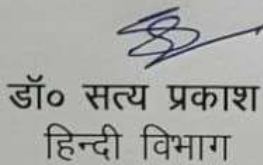 डॉ० सत्य प्रकाश
हिन्दी विभाग